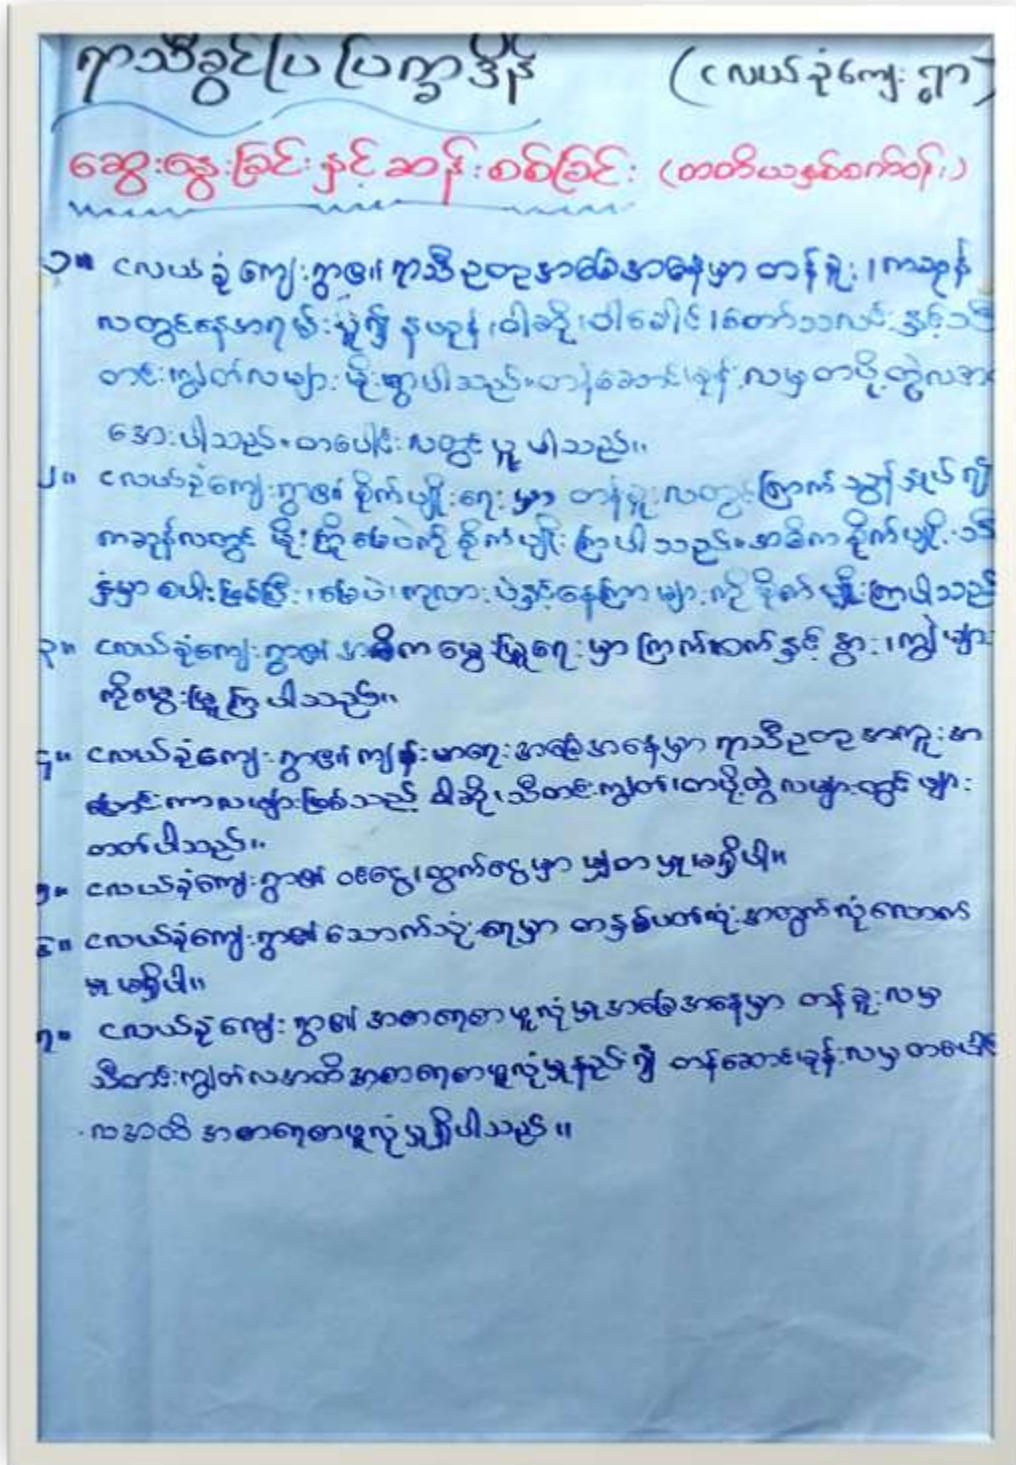 ရာသီခွင်ပြ ပြက္ခဒိန် (လယ်ခုံကျေးရွာ)
ဆွေးနွေးခြင်းနှင့်ဆန်းစစ်ခြင်း (တတိယနှစ်စက်ဝန်း)
၁။ လယ်ခုံကျေးရွာ၏ ရာသီဥတုအခြေအနေမှာ တန်ခူး၊ကဆုန်
လတွင်နေအရမ်းပူ၍ နယုန်၊ဝါဆို၊ဝါခေါင်၊တော်သလင်းနှင့်သီ
တင်းကျွတ်လများ မိုးရွာပါသည်။တန်ဆောင်မုန်းလမှတပို့တွဲလအ
အေးပါသည်။တပေါင်းလတွင်ပူပါသည်။
၂။ လယ်ခုံကျေးရွာ၏ စိုက်ပျိုးရေးမှာ တန်ခူးလတွင်ကြက်သွန်နှုတ်၍
ကဆုန်လတွင် မိုးကြိုမြေပဲကိုစိုက်ပျိုးကြပါသည်။အဓိကစိုက်ပျိုးသီး
နှံမှာစပါးဖြစ်ပြီး၊မြေပဲ၊ကုလားပဲနှင့်နေကြာများကို စိုက်ပျိုးကြပါသည်
၃။ လယ်ခုံကျေးရွာ၏ အဓိကမွေးမြူရေးမှာ ကြက်၊ဝက်နှင့် နွား၊ကျွဲများ
ကိုမွေးမြူကြပါသည်။
၄။ လယ်ခုံကျေးရွာ၏ကျန်းမာရေးအခြေအနေမှာ ရာသီဥတုအကူးအ
ပြောင်းကာလများဖြစ်သည့် ဝါဆို၊သီတင်းကျွတ်၊တပို့တွဲလများတွင် ဖျား
တတ်ပါသည်။
၅။ လယ်ခုံကျေးရွာ၏ ဝင်ငွေ၊ထွက်ငွေမှာ မျှတမှုမရှိပါ။
၆။ လယ်ခုံကျေးရွာ၏သောက်သုံးရေမှာ တနှစ်ပတ်လုံးအတွက်လုံလောက်
မှုမရှိပါ။
၇။ လယ်ခုံကျေးရွာ၏ အစားရေစာဖူလုံမှုအခြေအနေမှာ တန်ခူးလမှ
သီတင်းကျွတ်လအထိအစားရေစာဖူလုံမှုနည်း၍ တန်ဆောင်မုန်းလမှတပေါင်း
လအထိ အစားရေစာဖူလုံမှုရှိပါသည်။